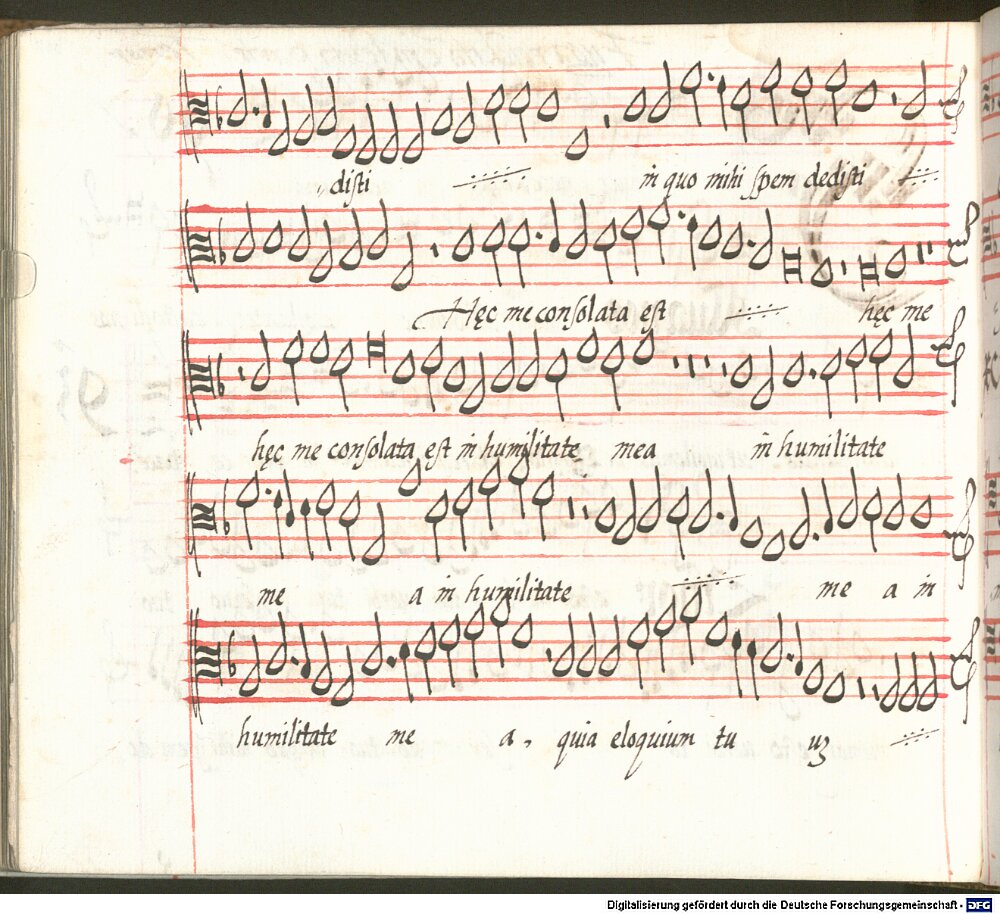 disti in quo mihi spem dedisti
Hęc me consolata est hęc me
hęc me consolata est in humilitate mea in humilitate
me a in humilitate me a in
humilitate me a, quia eloquium tu uʒ
Digitalisierung gefördert durch die Deutsche Forschungsgemeinschaft - DFG